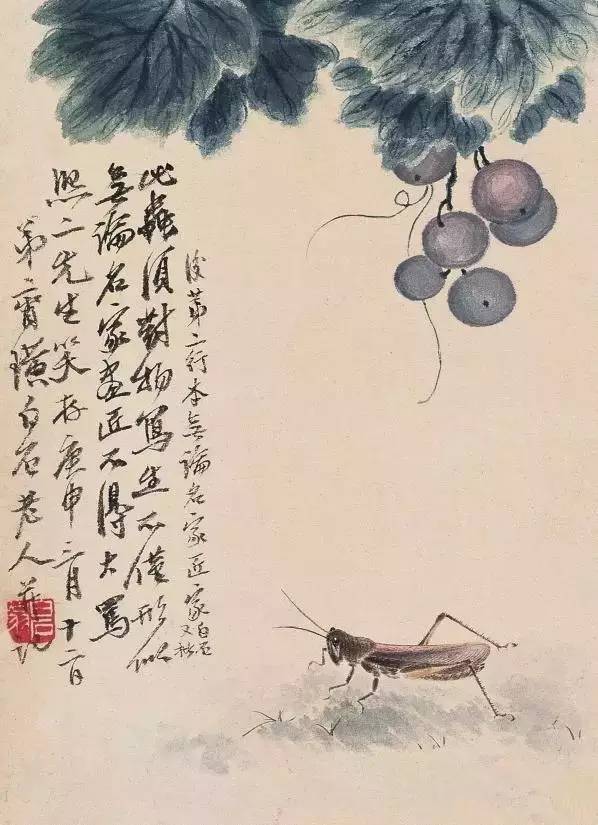 後第二行本無論名家匠家白石又
此蟲須對物寫生不僅形似
無論名家畫匠不得大罵
熙二先生笑存庚申三月十二日
第二宵璜白石老人並記